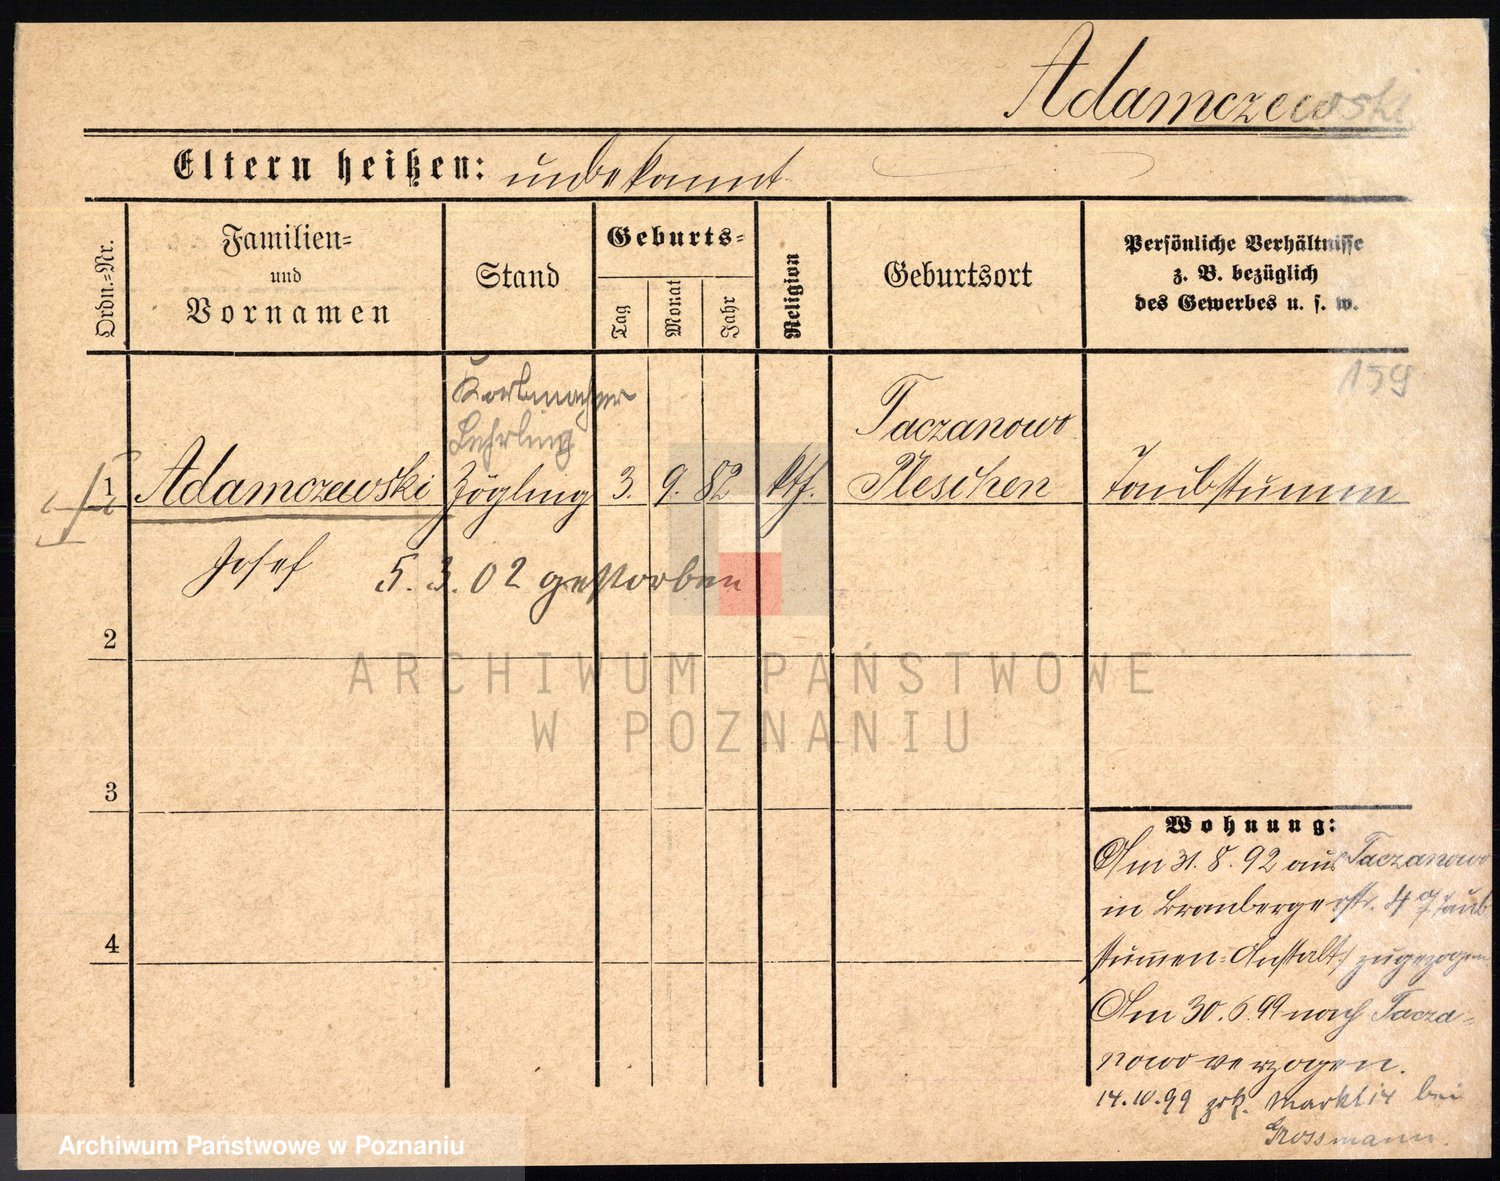 Adamczewski
Eltern heißen: unbekannt
Ordn.-Nr.
Familien-
und
Vornamen
Stand
Geburts-
Tag
Monat
Jahr
Religion
Geburtsort
Persönliche Verhältnisse
z. B. bezüglich
des Gewerbes u. s. w.
159
Korbmacher
Lehrling
1 Adamczewski Zögling 3. 9. 82 kth. Taczanowo
Pleschen Taubstumm
Josef 5. 3. 02 gestorben
2
ARCHIWUM PAŃSTWOWE
W POZNANIU
3
Wohnung:
Am 31. 8. 92 aus Taczanowo
in Brombergerstr. 4 Taub
stummen-Anstalt zugezogen
4
Am 30. 6. 99 nach Tacza-
nowo verzogen.
14.10.99 zrk. Markt 14 bei
Grossmann.
Archiwum Państwowe w Poznaniu